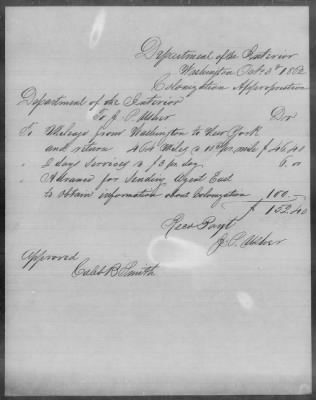 Department of the Interior
Washington Oct. 3d 1862
Colonization Appropriation
Department of the Interior
To J. P. Usher Dr
To Mileage from Washington to New York
and return 464 Miles @ 10cts pr. mile $46,40
" 2 day services @ $3 pr. day 6.00
" Advance for sending Agent East
to obtain information about Colonization 100.—
$ 152,40
Recd Payt
J. P. Usher
Approved
Caleb B Smith